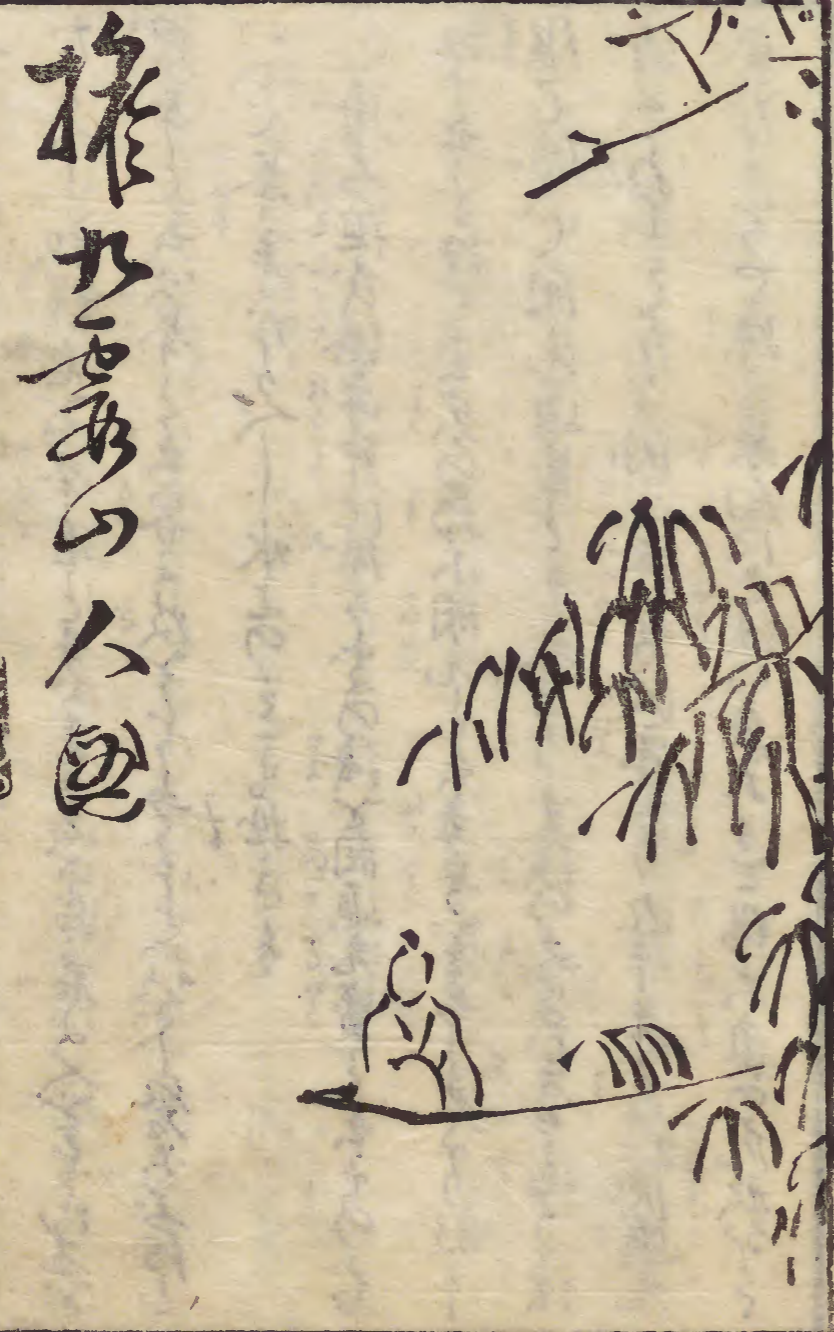 擬九霞山人圖